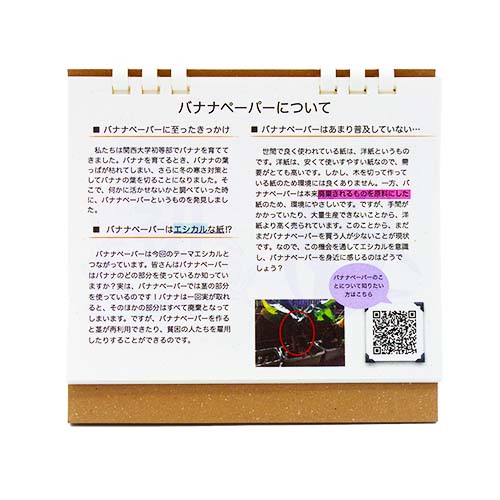 バナナペーパーについて
■ バナナペーパーに至ったきっかけ
私たちは関西大学初等部でバナナを育てて
きました。バナナを育てるとき、バナナの葉
っぱが枯れてしまい、さらに冬の寒さ対策と
してバナナの葉を切ることになりました。そ
こで、何かに活かせないかと調べていった時
に、バナナペーパーというものを発見しまし
た。
■ バナナペーパーはエシカルな紙!?
バナナペーパーは今回のテーマエシカルと
つながっています。皆さんはバナナペーパー
はバナナのどの部分を使っているか知ってい
ますか？実は、バナナペーパーでは茎の部分
を使っているのです！バナナは一回実が取れ
ると、そのほかの部分はすべて廃棄となって
しまいます。ですが、バナナペーパーを作る
と茎が再利用できたり、貧困の人たちを雇用
したりすることができるのです。
■ バナナペーパーはあまり普及していない…
世間で良く使われている紙は、洋紙というもの
です。洋紙は、安くて使いやすい紙なので、需
要がとても高いです。しかし、木を切って作って
いる紙のため環境には良くありません。一方、バ
ナナペーパーは本来廃棄されるものを原料にした
紙のため、環境にやさしいです。ですが、手間が
かかっていたり、大量生産できないことから、洋
紙より高く売られています。このことから、まだ
まだバナナペーパーを買う人が少ないことが現状
です。なので、この機会を通してエシカルを意識
し、バナナペーパーを身近に感じるのはどうで
しょう？
バナナペーパーのこ
とについて知りたい
方はこちら